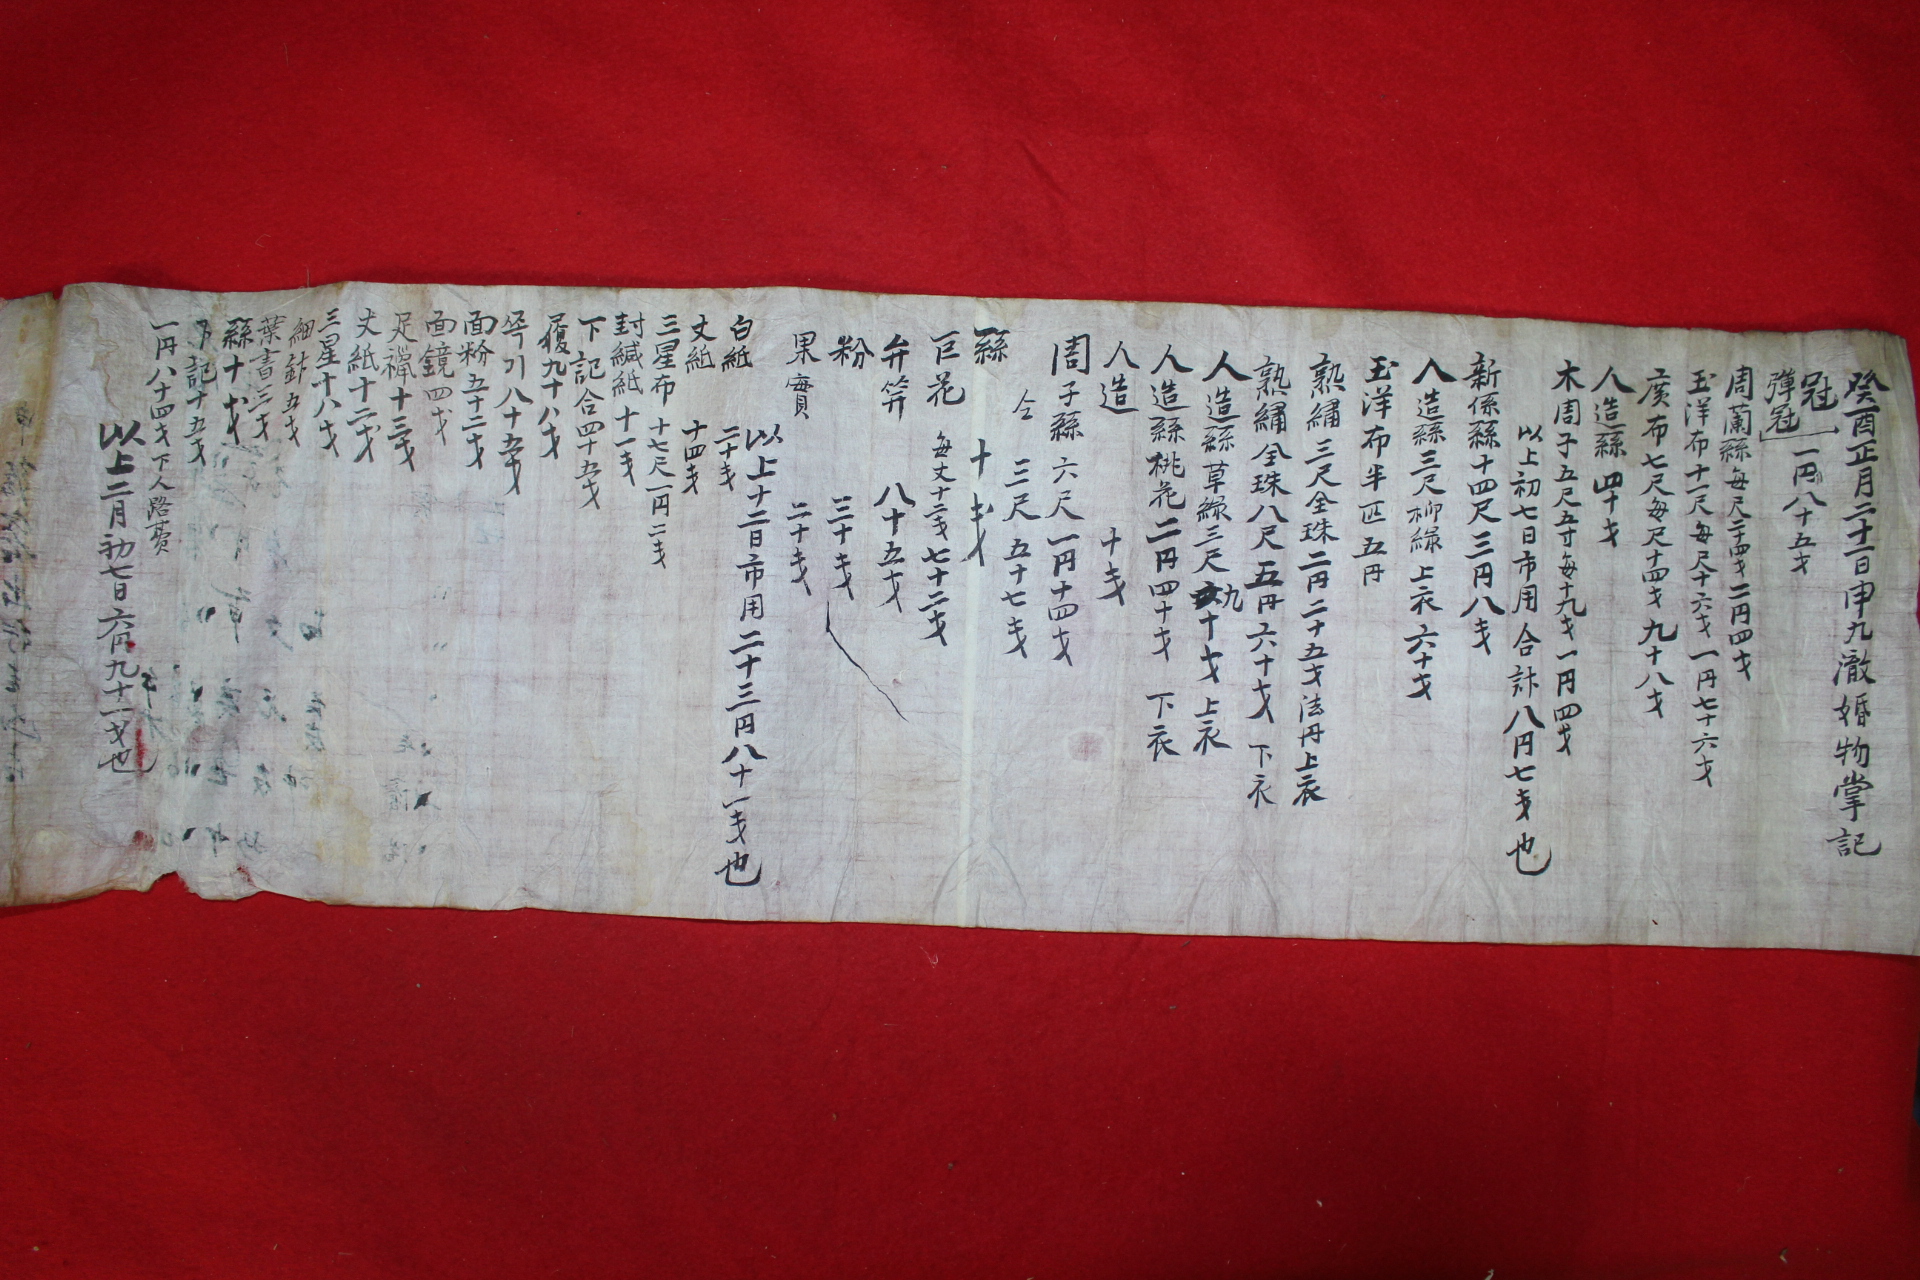 癸酉正月二十二日申九澈婚物掌記
冠
彈冠 一円八十五才
周蘭絲每尺二十四才二円四才
玉洋布十一尺每尺十六才一円七十六才
廣布七尺每尺十四才九十八才
人造絲四十才
木周子五尺五寸每十九才一円四才
以上初七日市用合計八円七才也
新係絲十四尺三円八才
人造絲三尺柳綠上衣六十才
玉洋布半匹五円
熟繡三尺全珠二円二十五才法丹上衣
熟繡全珠八尺五円六十才下衣
人造絲草綠三尺九十才上衣
人造絲桃花二円四十才下衣
人造 十才
周子絲六尺一円十四才
仝 三尺五十七才
絲 十才
巨花 每丈十二才七十二才
弁笄 八十五才
粉 三十才
果實 二十才
以上十二日市用二十三円八十一才也
白紙 二十才
丈紙 十四才
三星布 十七尺一円二才
封緘紙十一才
下記合四十五才
履九十八才
쪽기八十五才
面粉五十二才
面鏡四才
足襌十三才
丈紙十二才
三星十八才
細針五才
葉書三才
絲十才
下記十五才
一円八十四才下人路費
以上二月初七日六円九十一才也